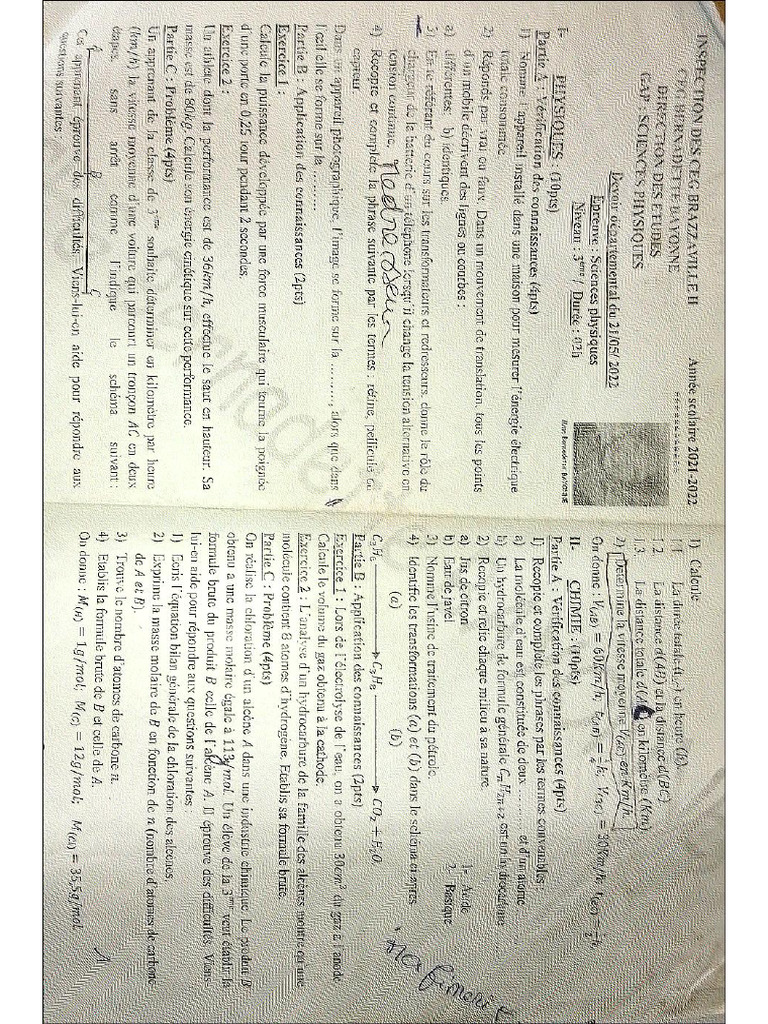 INSPECTION DES CEG BRAZZAVILLE II
CEG BERNADETTE BAYONNE
DIRECTION DES ETUDES
GAP : SCIENCES PHYSIQUES
Année scolaire 2021-2022
***********
Devoir départemental du 21/05/ 2022
Epreuve : Sciences physiques
Niveau : 3ème / Durée : 02h
I- PHYSIQUES : (10pts)
Partie A : Vérification des connaissances (4pts)
1) Nomme l'appareil installé dans une maison pour mesurer l'énergie électrique
totale consommée
2) Réponds par vrai ou faux. Dans un mouvement de translation, tous les points
d'un mobile décrivent des lignes ou courbes :
a) différentes; b) identiques.
3) En te référant du cours sur les transformateurs et redresseurs, donne le rôle du
chargeur de la batterie d'un téléphone lorsqu'il change la tension alternative en
tension continue.
4) Recopie et complète la phrase suivante par les termes : rétine, pellicule ou
capteur
Dans un appareil photographique, l'image se forme sur la ........., alors que dans
l'œil elle se forme sur la .........
Partie B : Application des connaissances (2pts)
Exercice 1 :
Calcule la puissance développée par une force musculaire qui tourne la poignée
d'une porte en 0,25 tour pendant 2 secondes.
Exercice 2 :
Un athlète dont la performance est de 36km/h, effectue le saut en hauteur. Sa
masse est de 80kg. Calcule son énergie cinétique sur cette performance.
Partie C : Problème (4pts)
Un apprenant de la classe de 3ème souhaite déterminer en kilomètre par heure
(km/h) la vitesse moyenne d'une voiture qui parcourt un tronçon AC en deux
étapes, sans arrêt comme l'indique le schéma suivant :
A B C
Cet apprenant éprouve des difficultés. Viens-lui-en aide pour répondre aux
questions suivantes :
1) Calcule
1.1 La durée totale en heure (h).
1.2 La distance d(AB) et la distance d(BC)
1.3. La distance totale en kilomètre (Km)
2) Détermine la vitesse moyenne V(AC) en km/h.
On donne : V(AB) = 60km/h,
II- CHIMIE : (10pts)
Partie A : Vérification des connaissances (4pts)
1) Recopie et complète les phrases par les termes convenables :
a) La molécule d'eau est constituée de deux ......... et d'un atome
b) Un hydrocarbure de formule générale CnH2n+2 est un hydrocarbure ...
2) Recopie et relie chaque milieu à sa nature.
a) Jus de citron 1- Acide
b) Eau de javel 2- Basique
3) Nomme l'usine de traitement du pétrole.
4) Identifie les transformations (a) et (b) dans le schéma ci-après
(a) (b)
C3H6 → C3H8 → CO2 + H2O
Partie B : Application des connaissances (2pts)
Exercice 1 : Lors de l'électrolyse de l'eau, on a obtenu 30cm³ du gaz à l'anode
Calcule le volume du gaz obtenu à la cathode.
Exercice 2 : L'analyse d'un hydrocarbure de la famille des alcènes montre qu'une
molécule contient 8 atomes d'hydrogène. Etablis sa formule brute.
Partie C : Problème (4pts)
On réalise la chloration d'un alcène A dans une industrie chimique. Le produit B
obtenu a une masse molaire égale à 113g/mol. Un élève de la 3ème veut établir la
formule brute du produit B celle de l'alcène A. Il éprouve des difficultés. Viens-
lui-en aide pour répondre aux questions suivantes:
1) Ecris l'équation bilan générale de la chloration des alcènes.
2) Exprime la masse molaire de B en fonction de n (nombre d'atomes de carbone
de A et B).
3) Trouve le nombre d'atomes de carbone n.
4) Etablis la formule brute de B et celle de A.
On donne : M(H) = 1g/mol; M(C) = 12g/mol; M(Cl) = 35,5g/mol.